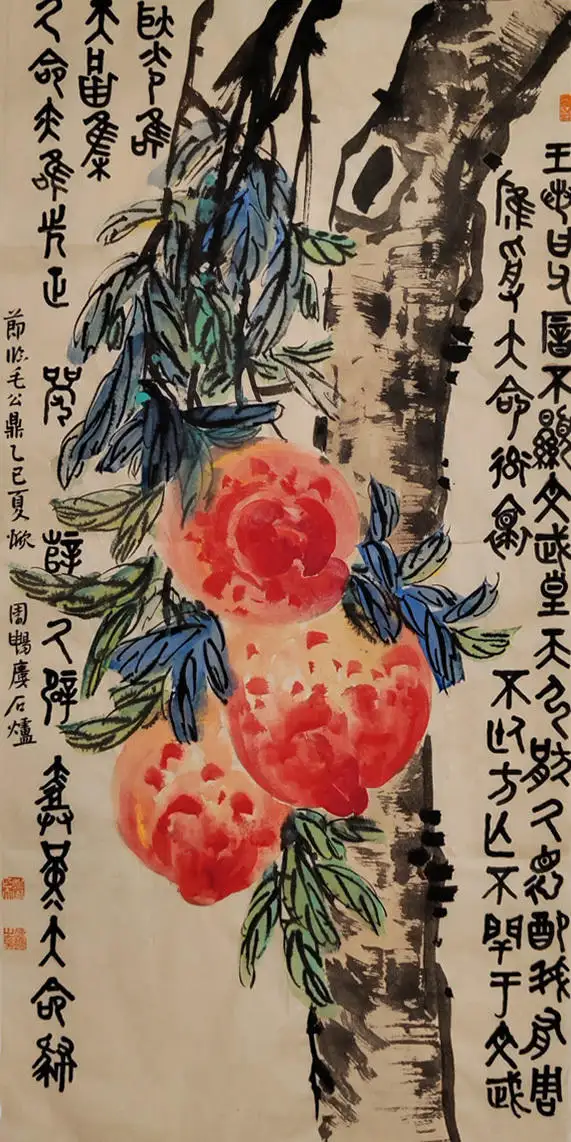 王若曰父厝不顯文武皇天弘猒厥德配我有周
膺受大命率懷不廷方亡不閈于文武
耿光唯
天集
厥命亦唯先正辥厥辟堇大命肆
節臨毛公鼎乙巳夏 周暢廔石爐